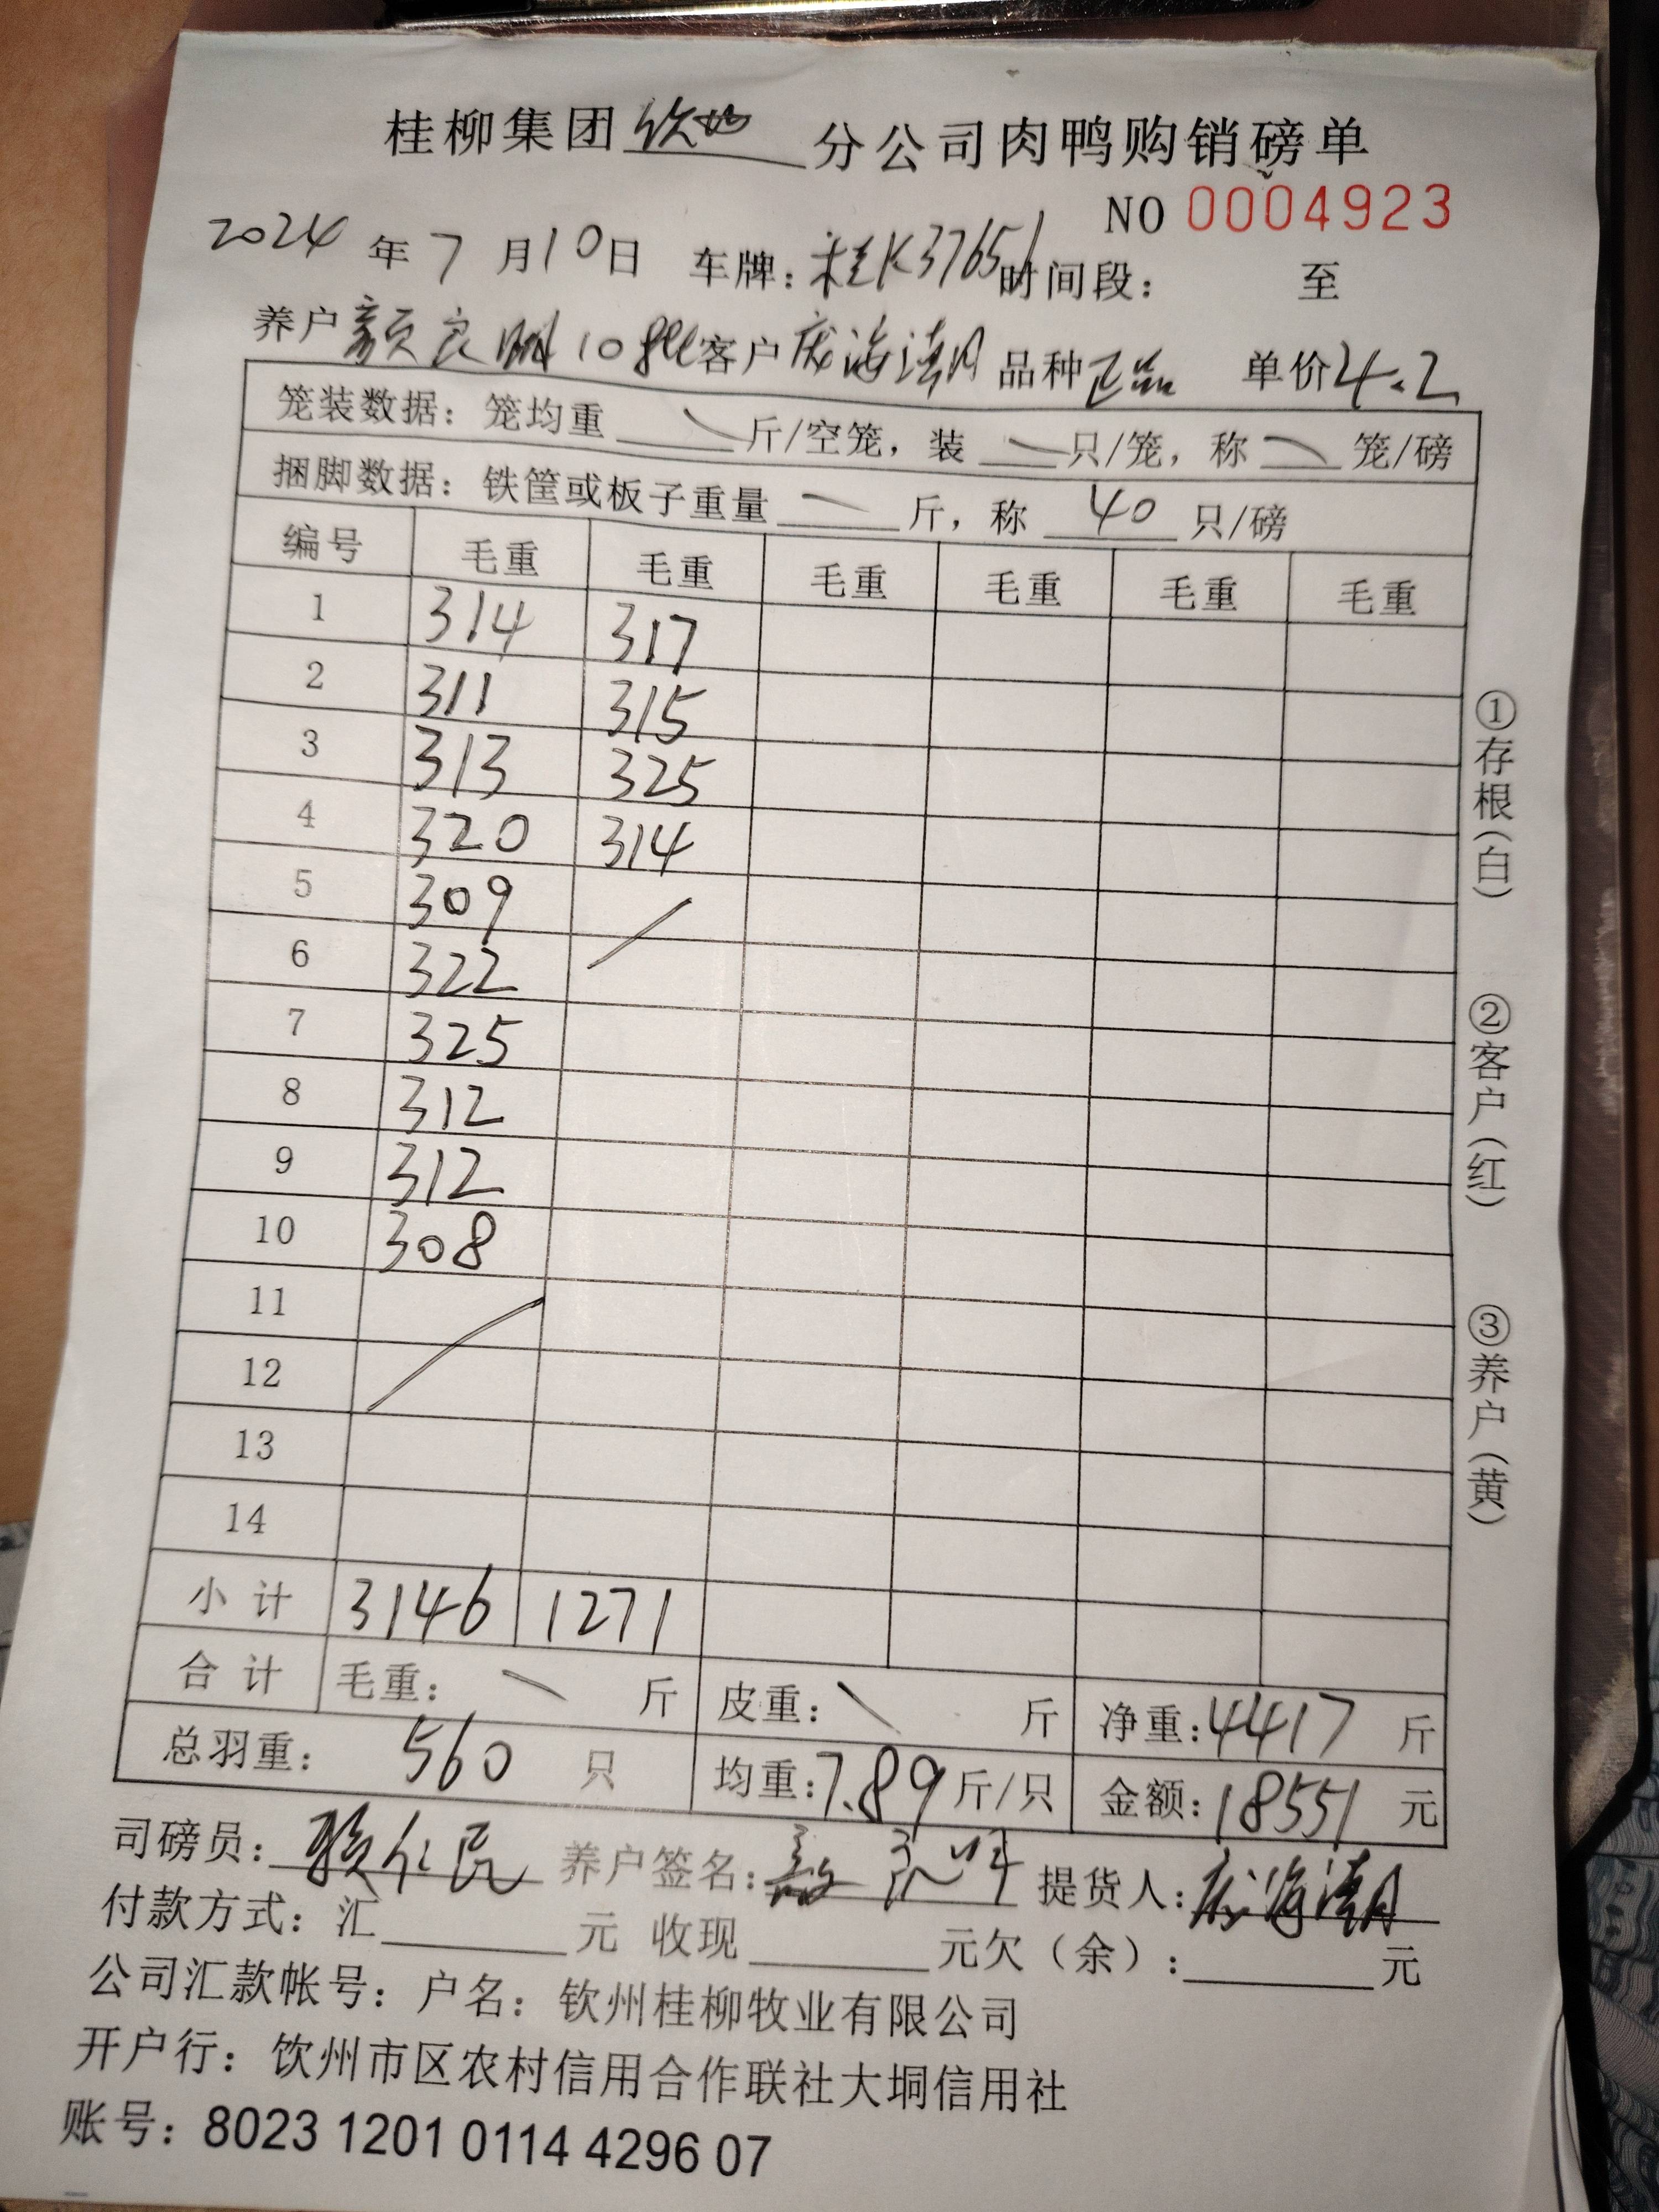 桂柳集团钦州分公司肉鸭购销磅单
NO 0004923
2024年7月10日 车牌：桂K37651时间段： 至
养户颜良明10批客户庞海潮品种正品 单价4.2
笼装数据：笼均重 斤/空笼，装 只/笼，称 笼/磅
捆脚数据：铁筐或板子重量 斤，称 40 只/磅
编号 毛重 毛重 毛重 毛重 毛重 毛重
1 314 317
2 311 315
3 313 325
4 320 314
5 309
6 322
7 325
8 312
9 312
10 308
11
12
13
14
小计 3146 1271
合计 毛重： 斤 皮重： 斤 净重：4417 斤
总羽重： 560 只 均重：7.89斤/只 金额：18551 元
司磅员： 养户签名： 提货人：庞海潮
付款方式：汇 元 收现 元欠（余）： 元
公司汇款帐号：户名：钦州桂柳牧业有限公司
开户行：钦州市区农村信用合作联社大垌信用社
账号：8023 1201 0114 4296 07
①存根（白） ②客户（红） ③养户（黄）